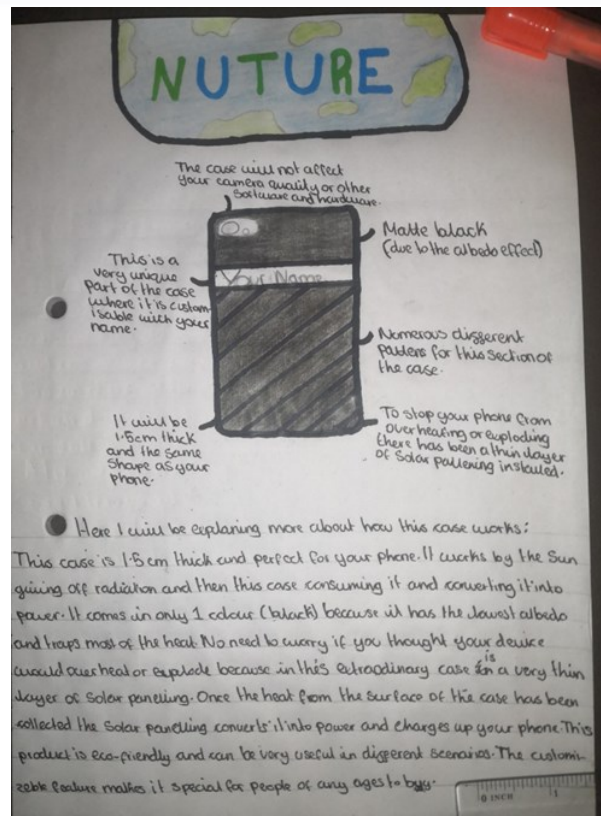 NUTURE
The case will not affect
your camera quality or other
software and hardware.
Matte black
(due to the albedo effect)
This is a
very unique
part of the case
where it is custom-
isable with your
name.
Your Name
Numerous different
pattens for this section of
the case.
It will be
1.5cm thick
and the same
shape as your
phone.
To stop your phone from
over heating or exploding
there has been a thin layer
of solar pattening installed.
Here I will be explaning more about how this case works:
This case is 1.5 cm thick and perfect for your phone. It works by the Sun
giving off radiation and then this case consuming it and converting it into
power. It comes in only 1 colour (black) because it has the lowest albedo
and traps most of the heat. No need to worry if you thought your device
would overheat or explode because in this extraodinary case is a very thin
layer of solar panelling. Once the heat from the surface of the case has been
collected the solar panelling converts it into power and charges up your phone. This
product is eco-friendly and can be very useful in different scenarios. The customi-
zeble feature makes it special for people of any ages to buy.
0 INCH 1